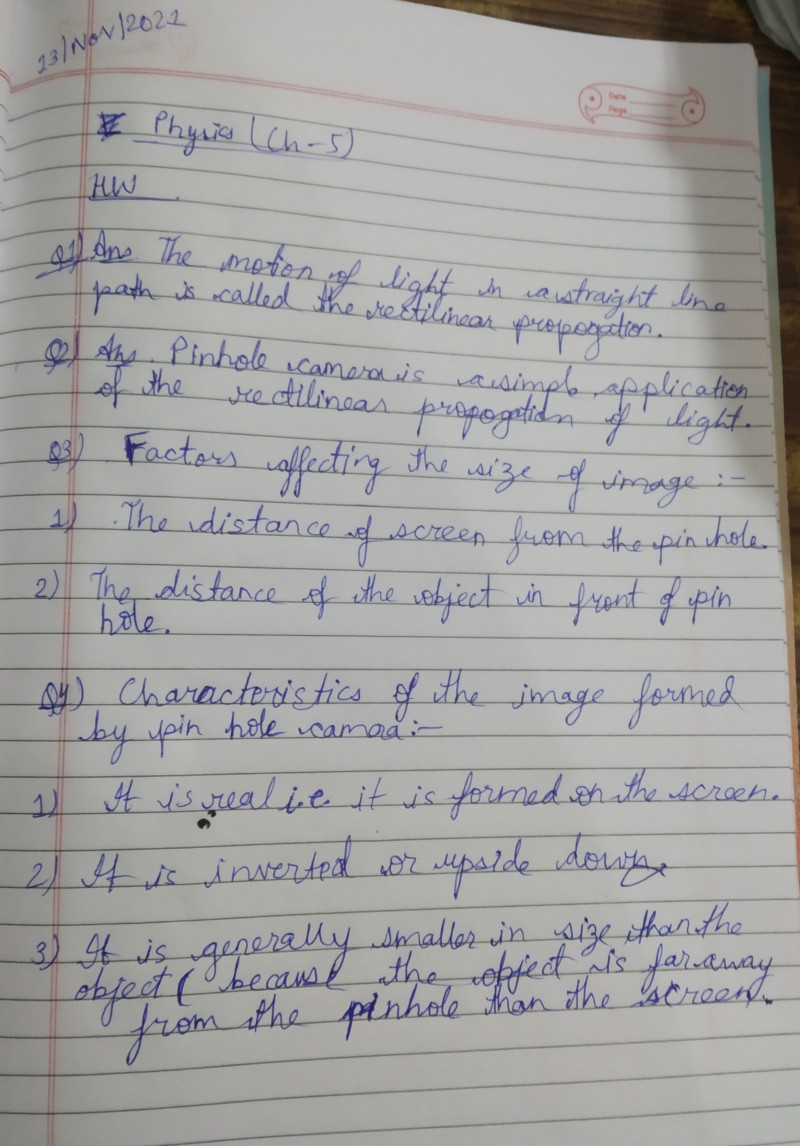 23/Nov/2021
Date
Page
Physics (Ch-5)
HW
Q1) Ans. The motion of light in a straight line
path is called the rectilinear propogation.
Q2) Ans. Pinhole camera is a simple application
of the rectilinear propogation of light.
Q3) Factors affecting the size of image :-
1) The distance of screen from the pin hole.
2) The distance of the object in front of pin
hole.
Q4) Characteristics of the image formed
by pin hole camaa:-
1) It is real i.e. it is formed on the screen.
2) It is inverted or upside down.
3) It is generally smaller in size than the
object ( because the object is far away
from the pinhole than the screen.